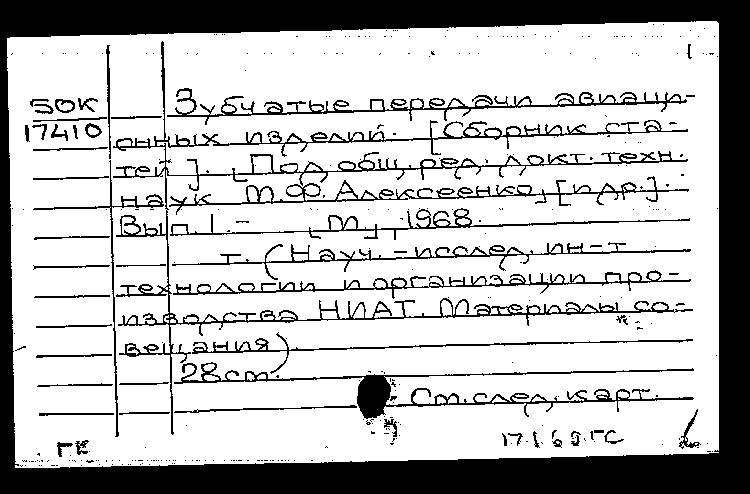 1
БОК Зубчатые передачи авиаци-
17410 онных изделий. [Сборник ста-
тей]. [Под общ. ред. докт. техн.
наук М.Ф. Алексеенко] [и др.].
Вып. 1. – [М], 1968.
т. (Науч.-исслед. ин-т
технологии и организации про-
изводства НИАТ. Материалы со-
вещания).
28 cm.
См. след. карт.
ГК 17.1.69.ГС